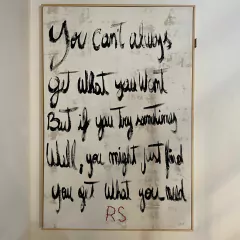 You can't always
get what you want
But if you try sometimes
Well, you might just find
you get what you need
RS